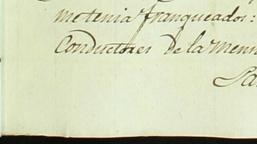 me tenia franqueados:
Conductores de la menn
Sa